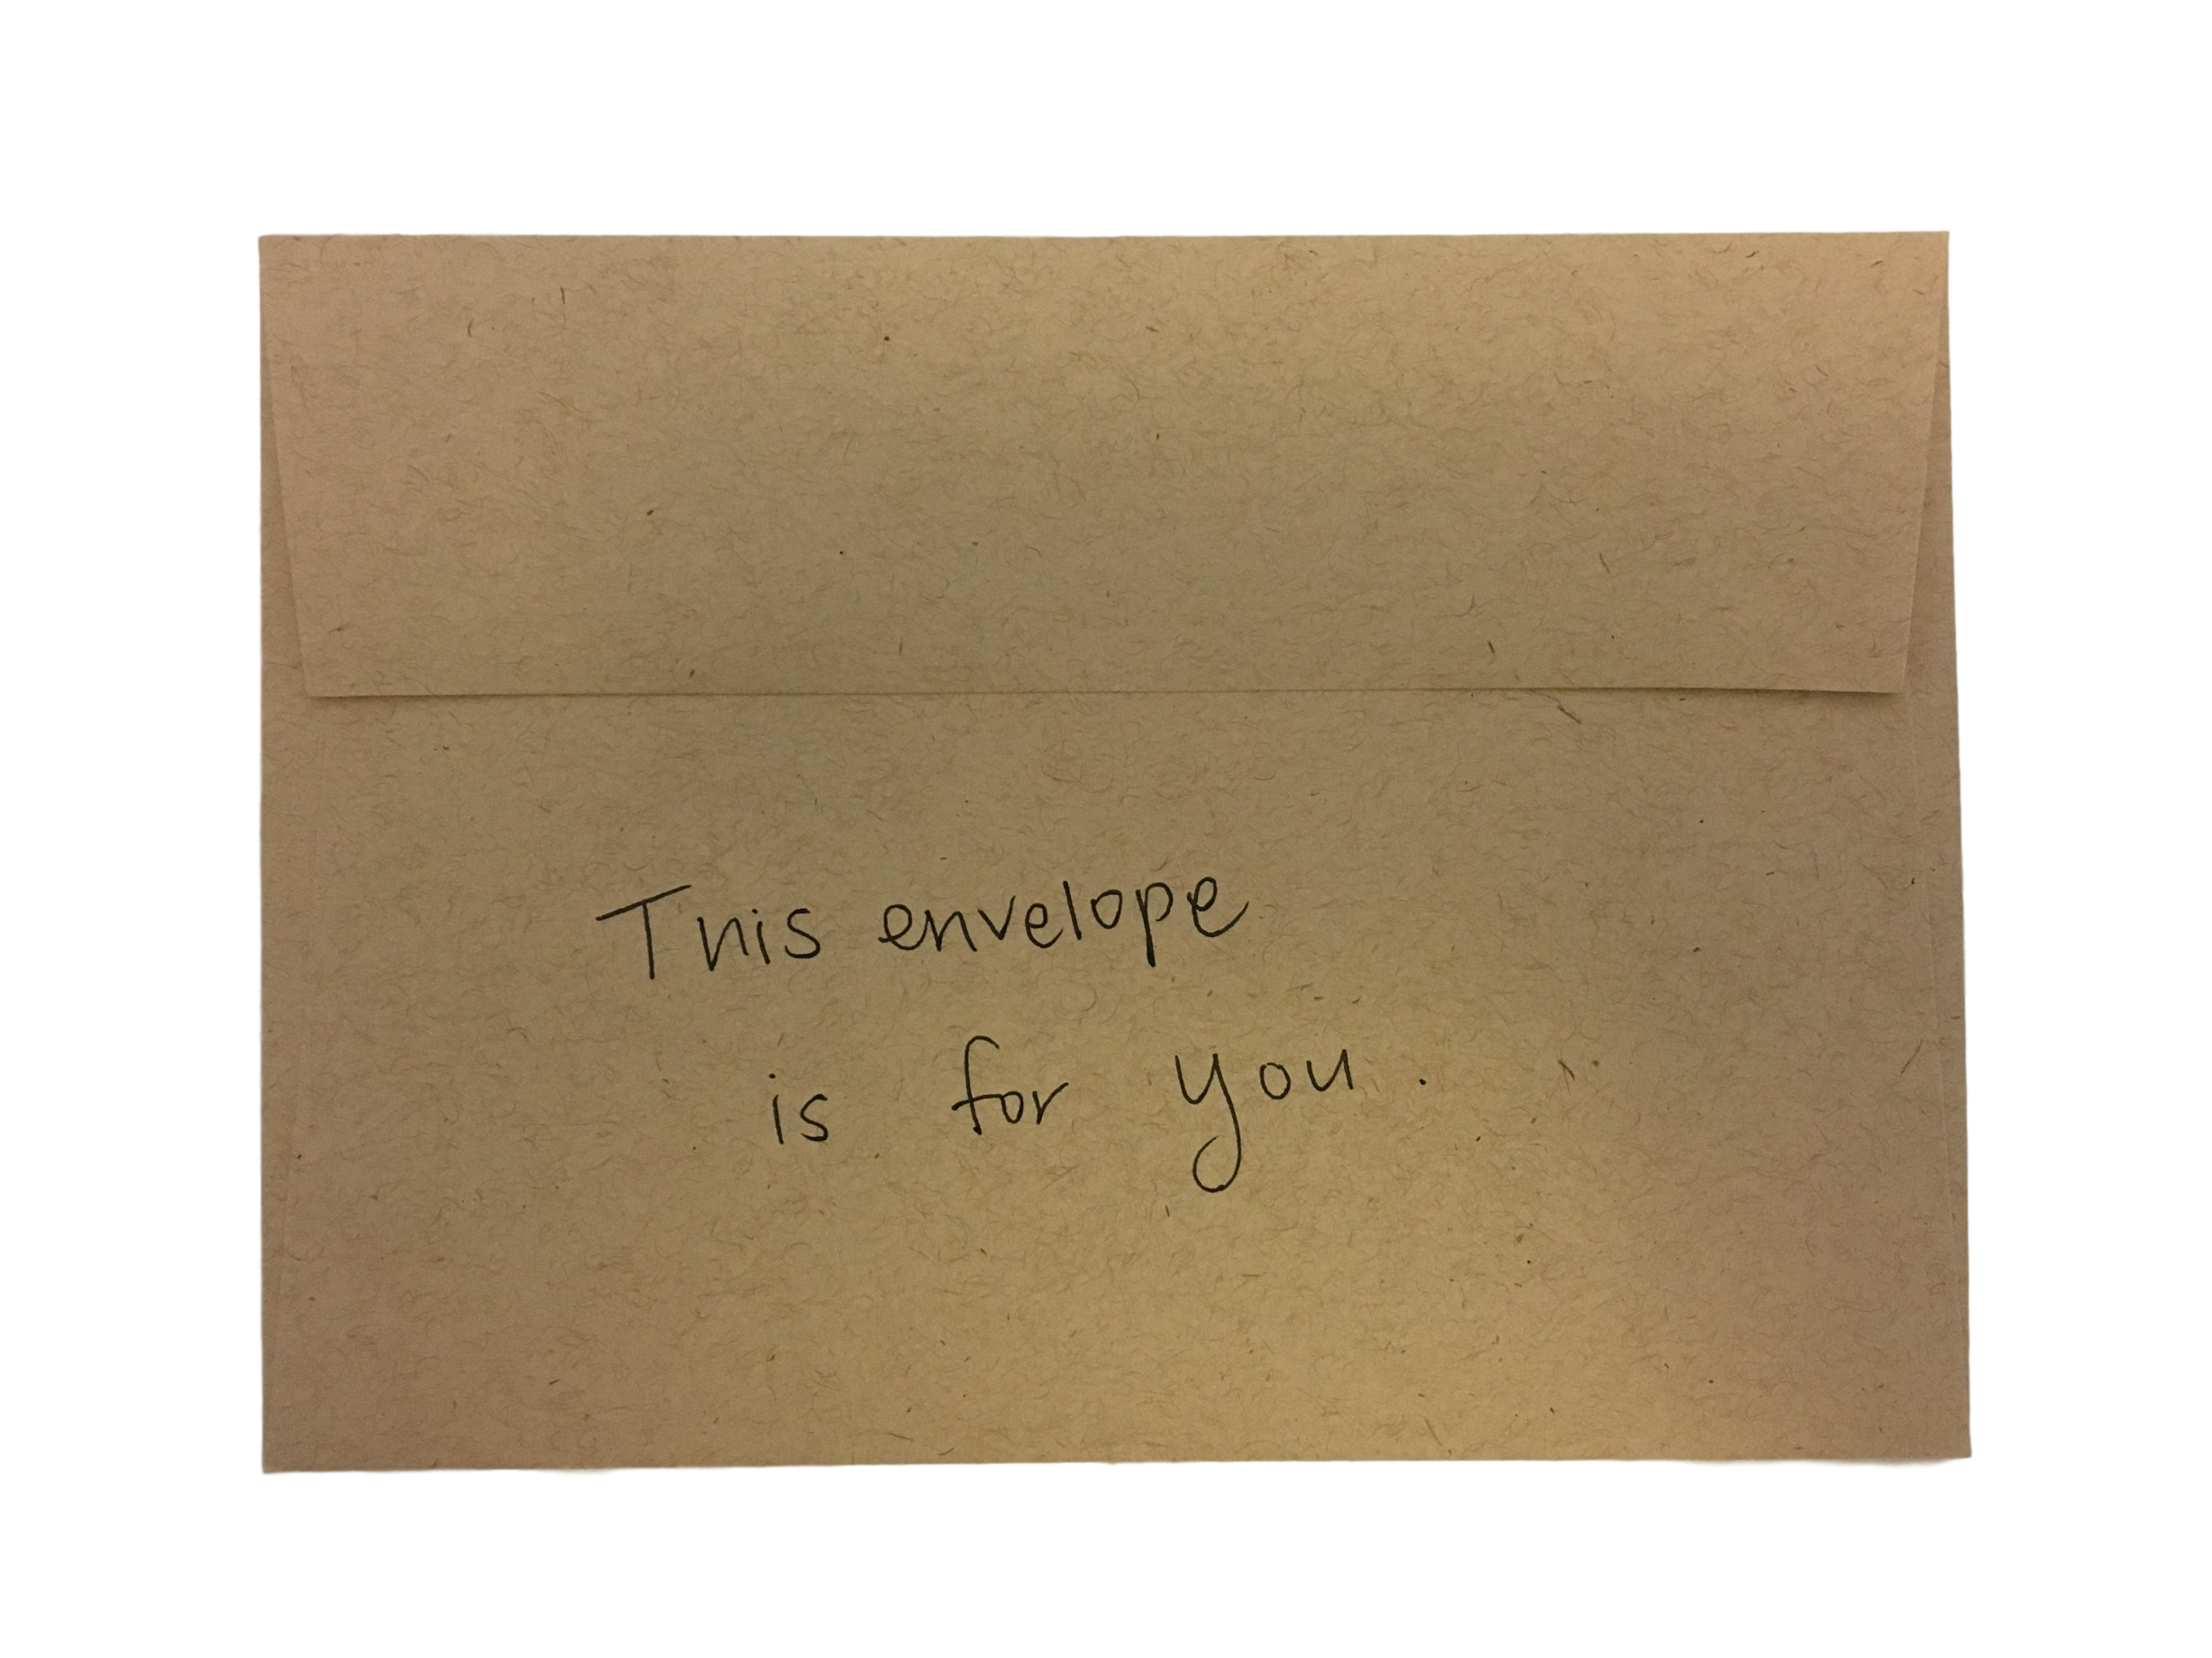 This envelope
is for you.